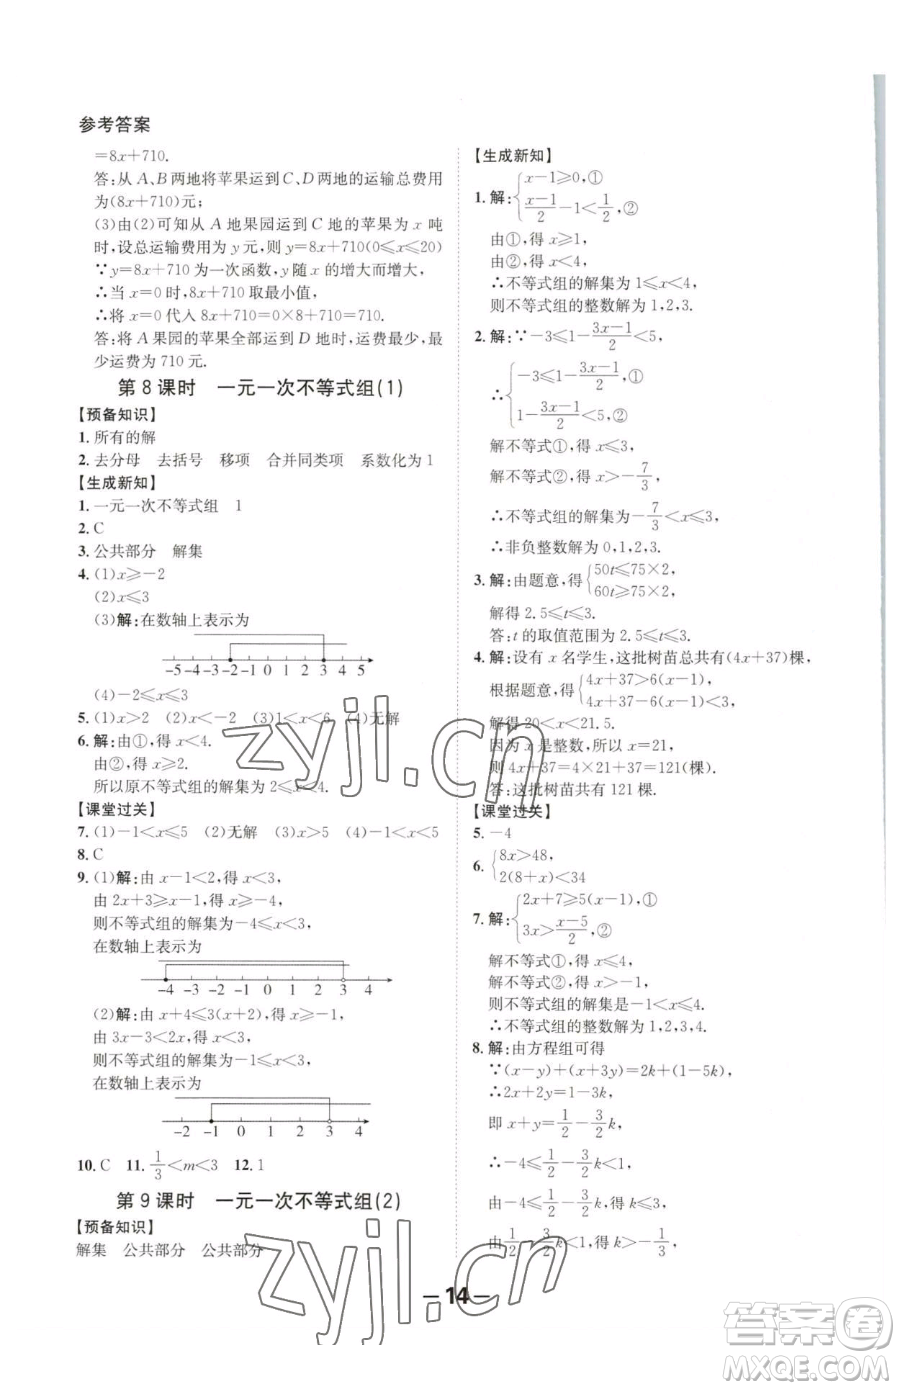 参考答案
=8x+710.
答:从 A、B 两地将苹果运到 C、D 两地的运输总费用
为(8x+710)元;
(3)由(2)可知从 A 地果园运到 C 地的苹果为 x 吨
时,设总运输费用为 y 元,则 y=8x+710(0≤x≤20)
∵y=8x+710 为一次函数,y 随 x 的增大而增大,
∴当 x=0 时,8x+710 取最小值,
∴将 x=0 代入 8x+710=0×8+710=710.
答:将 A 果园的苹果全部运到 D 地时,运费最少,最
少运费为 710 元.
第 8 课时 一元一次不等式组(1)
【预备知识】
1. 所有的解
2. 去分母 去括号 移项 合并同类项 系数化为 1
【生成新知】
1. 一元一次不等式组 1
2. C
3. 公共部分 解集
4. (1)x≥-2
(2)x≤3
(3)解:在数轴上表示为
-5 -4 -3 -2 -1 0 1 2 3 4 5
(4)-2≤x≤3
5. (1)x>2 (2)x<-2 (3)1<x<6 (4)无解
6. 解:由①,得 x<4.
由②,得 x>2.
所以原不等式组的解集为 2<x<4.
【课堂过关】
7. (1)-1<x≤5 (2)无解 (3)x>5 (4)-1<x≤5
8. C
9. (1)解:由 x-1<2,得 x<3,
由 2x+3≥x-1,得 x≥-4,
则不等式组的解集为-4≤x<3,
在数轴上表示为
-4 -3 -2 -1 0 1 2 3 4
(2)解:由 x+4≤3(x+2),得 x≥-1,
由 3x-3<2x,得 x<3,
则不等式组的解集为-1≤x<3,
在数轴上表示为
-2 -1 0 1 2 3 4
10. C 11. 1/3<m<3 12. 1
第 9 课时 一元一次不等式组(2)
【预备知识】
解集 公共部分 公共部分
【生成新知】
1. 解:{x-1≥0,①
(x-1)/2-1<1/2,②
由①,得 x≥1,
由②,得 x<4,
∴不等式组的解集为 1≤x<4,
则不等式组的整数解为 1,2,3.
2. 解:∵-3≤1-(3x-1)/2<5,
∴{-3≤1-(3x-1)/2,①
1-(3x-1)/2<5,②
解不等式①,得 x≤3,
解不等式②,得 x>-7/3,
∴不等式组的解集为-7/3<x≤3,
∴非负整数解为 0,1,2,3.
3. 解:由题意,得{50t≤75×2,
60t≥75×2,
解得 2.5≤t≤3.
答:t 的取值范围为 2.5≤t≤3.
4. 解:设有 x 名学生,这批树苗总共有(4x+37)棵,
根据题意,得{4x+37>6(x-1),
4x+37<6(x-1)+3,
解得 20<x<21.5.
因为 x 是整数,所以 x=21,
则 4x+37=4×21+37=121(棵).
答:这批树苗共有 121 棵.
【课堂过关】
5. -4
6. {8x>48,
2(8+x)<34
7. 解:{2x+7≥5(x-1),①
3x>(x-5)/2,②
解不等式①,得 x≤4,
解不等式②,得 x>-1,
则不等式组的解集是-1<x≤4.
∴不等式组的整数解为 0,1,2,3,4.
8. 解:由方程组可得
∵(x-y)+(x+3y)=2k+(1-5k),
∴2x+2y=1-3k,
即 x+y=1/2-3/2k,
∴-4≤1/2-3/2k<1,
由-4≤1/2-3/2k,得 k≤3,
由1/2-3/2k<1,得 k>-1/3,
-14-
zyjl.cn
zyjl.cn
答案圈
MXQE.COM